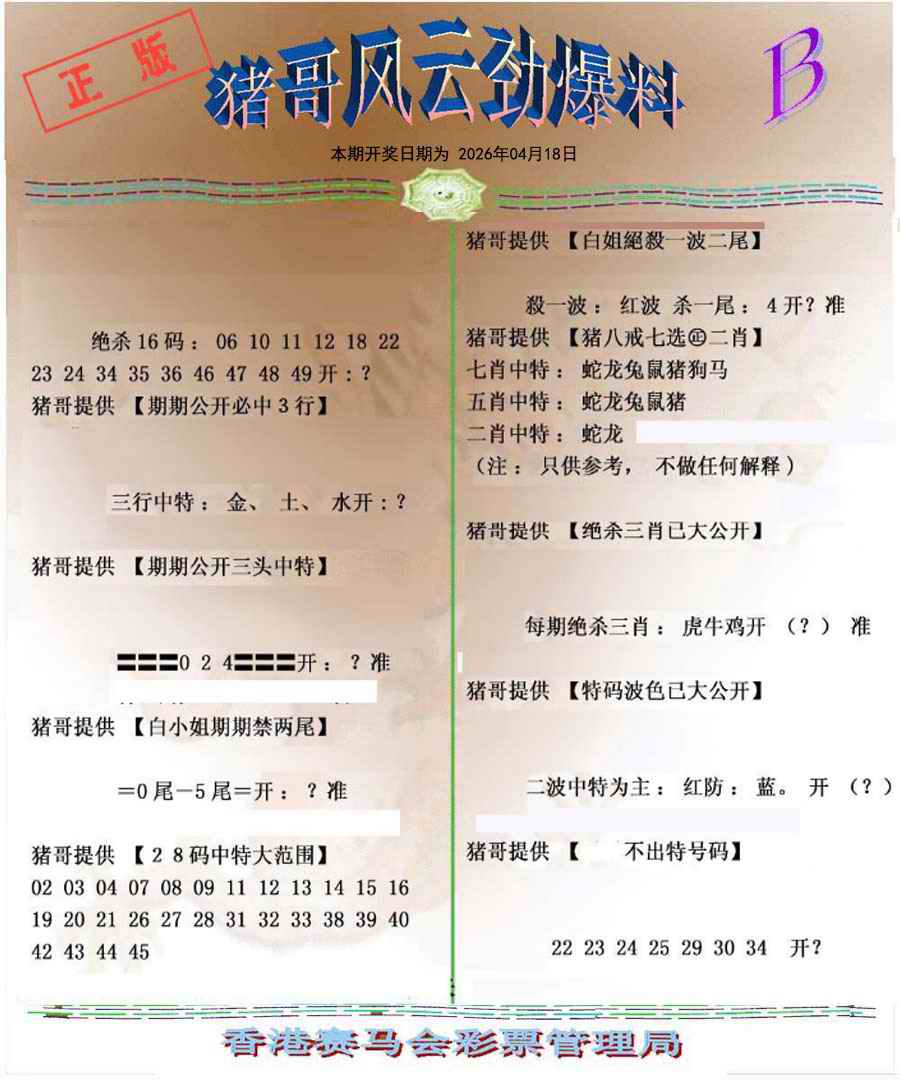 正版
猪哥风云劲爆料
B
本期开奖日期为 2026年04月18日
绝杀16码： 06 10 11 12 18 22
23 24 34 35 36 46 47 48 49开：？
猪哥提供 【期期公开必中3行】
三行中特： 金、 土、 水开：？
猪哥提供 【期期公开三头中特】
〓〓〓0 2 4〓〓〓开： ？准
猪哥提供 【白小姐期期禁两尾】
＝0尾－5尾＝开： ？准
猪哥提供 【２８码中特大范围】
02 03 04 07 08 09 11 12 13 14 15 16
19 20 21 26 27 28 31 32 33 38 39 40
42 43 44 45
猪哥提供 【白姐絕殺一波二尾】
殺一波： 红波 杀一尾： 4开？准
猪哥提供 【猪八戒七选㊣二肖】
七肖中特： 蛇龙兔鼠猪狗马
五肖中特： 蛇龙兔鼠猪
二肖中特： 蛇龙
（注： 只供参考， 不做任何解释）
猪哥提供 【绝杀三肖已大公开】
每期绝杀三肖： 虎牛鸡开 （？） 准
猪哥提供 【特码波色已大公开】
二波中特为主： 红防： 蓝。 开 （？）
猪哥提供 【 不出特号码】
22 23 24 25 29 30 34 开？
香港赛马会彩票管理局